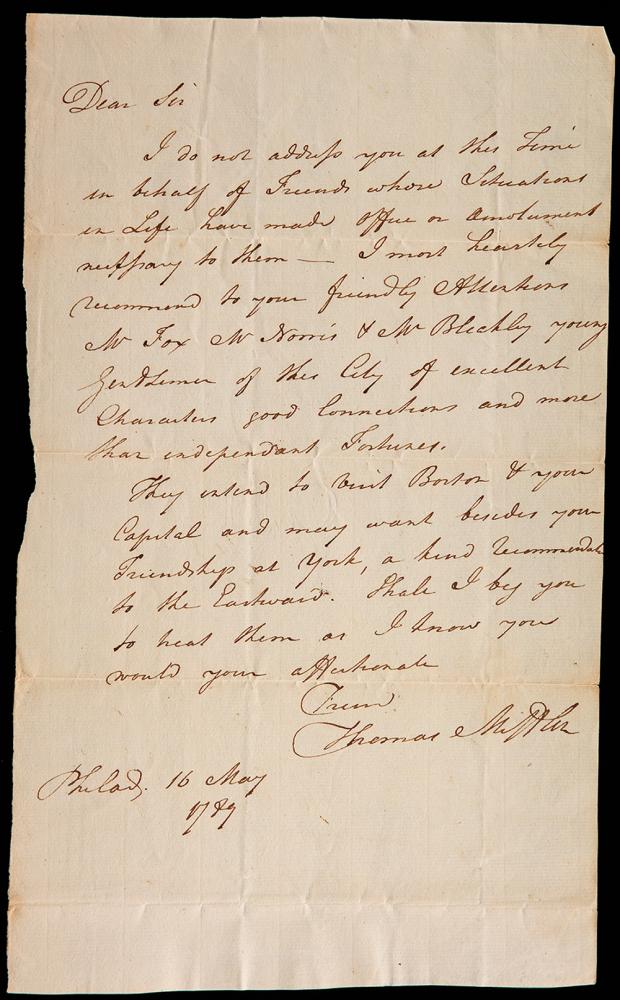 Dear Sir
I do not address you at this Time
in behalf of Friends whose Situations
in Life have made office or Emolument
necessary to them — I most heartily
recommend to your friendly Attentions
Mr Fox Mr Norris & Mr Bleckley young
Gentlemen of this City of excellent
Characters good Connections and more
than independant Fortunes.
They intend to visit Boston & your
Capital and may want besides your
Friendship at York, a kind recommendate
to the Eastward. Shall I beg you
to treat them as I know you
would your affectionate
Friend
Thomas Mifflin
Philad. 16 May
1789